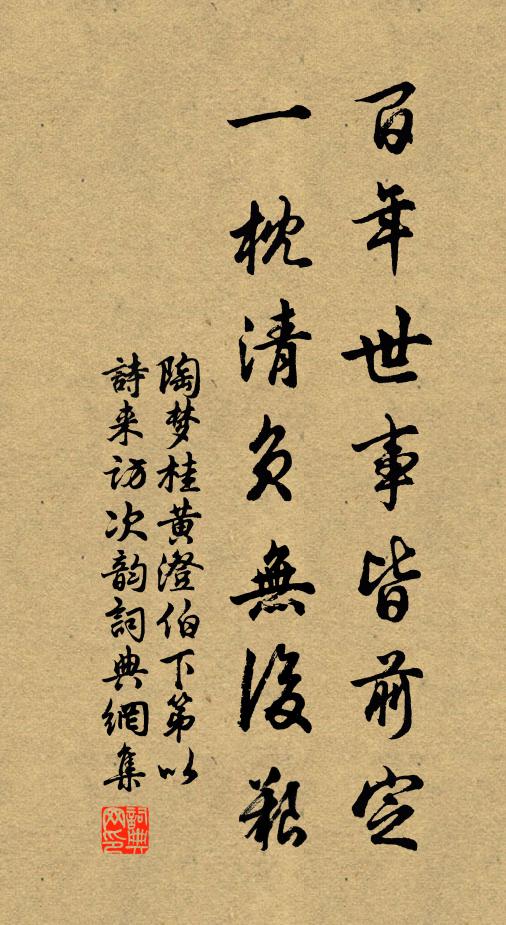 百年世事皆前定
一枕清無後艱
陶梦桂黄澄伯下第以
詩来访次韵詞典網集
詞典
网印